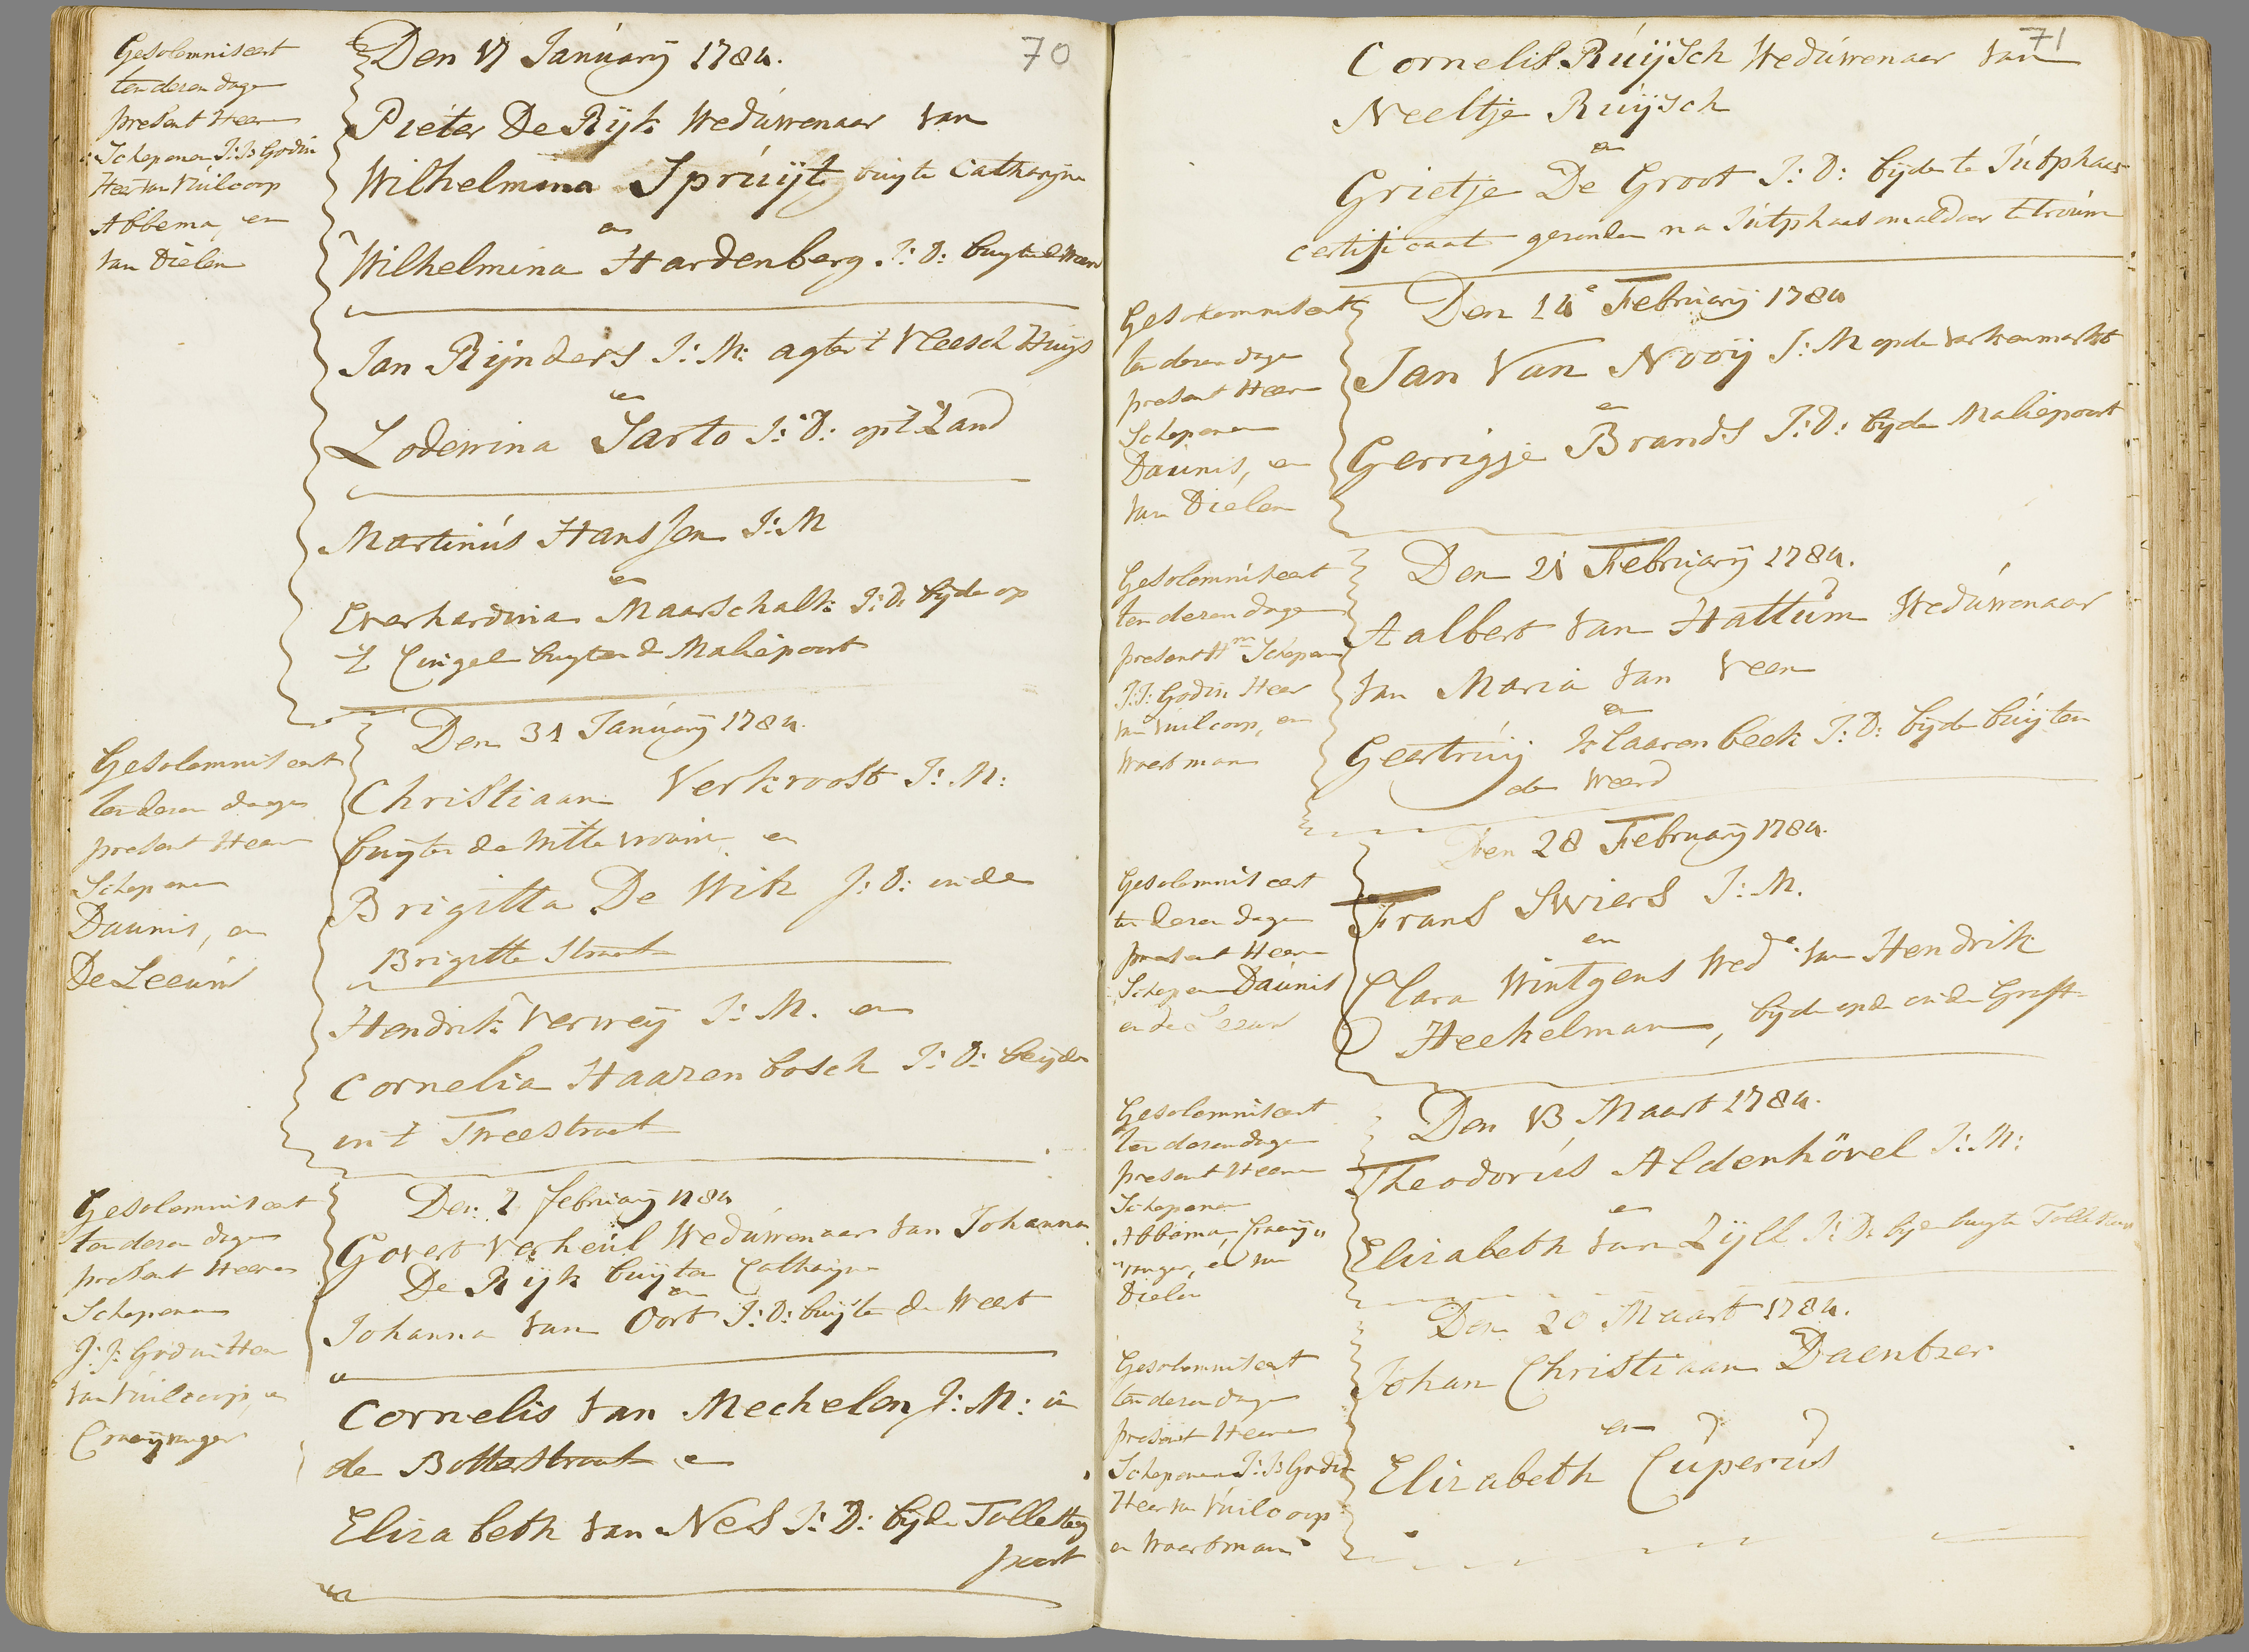 70
Gesolemniseert
ten deren dage
present Heeren
Schepenen J: J: Godin
Heer van Vuilcoop
Abbema, en
van Dielen
Den 17 January 1784.
Pieter De Rijk Weduwenaar van
Wilhelmina Spruijt buyte Catharyne
en
Wilhelmina Hardenberg J: D: buyten de Weerd
Jan Rijnders J: M: agter t Vleesch Huijs
en
Lodewina Sarto J: D: op 't Zand
Martinus Hanssen J: M
en
Everhardina Maarschalk J: D: byde op
't Cingel buyten de Maliepoort
Gesolemniseert
ten deren dage
present Heeren
Schepenen
Daunis, en
De Leeuw
Den 31 January 1784.
Christiaan Verkroost J: M:
buyten de Witte vrouwe en
Brigitta De Wik J: D: in de
Brigitte Straat
Hendrik Verweij J: M. en
Cornelia Haazenbosch J: D: beyde
in 't Tweestraat
Gesolemniseert
ten deren dage
present Heeren
Schepenen
J: J: Godin Heer
van Vuilcoop, en
Craeyvanger
Den 7 february 1784
Govert Verheul Weduwenaar van Johanna
De Rijk buyten Catharyne
en
Johanna van Oort J: D: buyten de Weert
Cornelis van Mechelen J: M: in
de Botterstraat en
Elizabeth van Nes J: D: byde Tollesteeg
poort
71
Cornelis Ruijsch Weduwenaar van
Neeltje Ruijsch
en
Grietje De Groot J: D: byde te Jutphaas
certificaat gezonden na Jutphaas om aldaar te trouwe
Gesolemniseert
ten deren dage
present Heeren
Schepenen
Daunis, en
van Dielen
Den 14e February 1784
Jan Van Nooij J: M op de varkenmarkt
en
Gerrigje Brands J: D: byde Maliepoort
Gesolemniseert
ten deren dage
present Hren Schepen
J: J: Godin Heer
van Vuilcoop, en
Woertman
Den 21 February 1784.
Aalbert van Hattum Weduwenaar
van Maria van Veen
en
Geertruij Klaarenbeek J: D: byde buijten
de Weerd
Gesolemniseert
ten deren dage
present Heeren
Schepen Daunis
en de Leeuw
Den 28 February 1784.
Frans Swiers J: M.
en
Clara Wintgens Wede van Hendrik
Heekelman, byde op de oude Graft
Gesolemniseert
ten deren dage
present Heeren
Schepenen
Abbema, Craeij„
„vanger, en van
Dielen
Den 13 Maart 1784.
Theodorus Aldenhövel J: M:
en
Elizabeth van Zijll J: D: byde buyte Tollesteeg
Gesolemniseert
ten deren dage
present Heeren
Schepenen J: J: Godin
Heer van Vuilcoop
en Woertman
Den 20 Maart 1784.
Johan Christiaan Daentzer
en
Elizabeth Cuperus